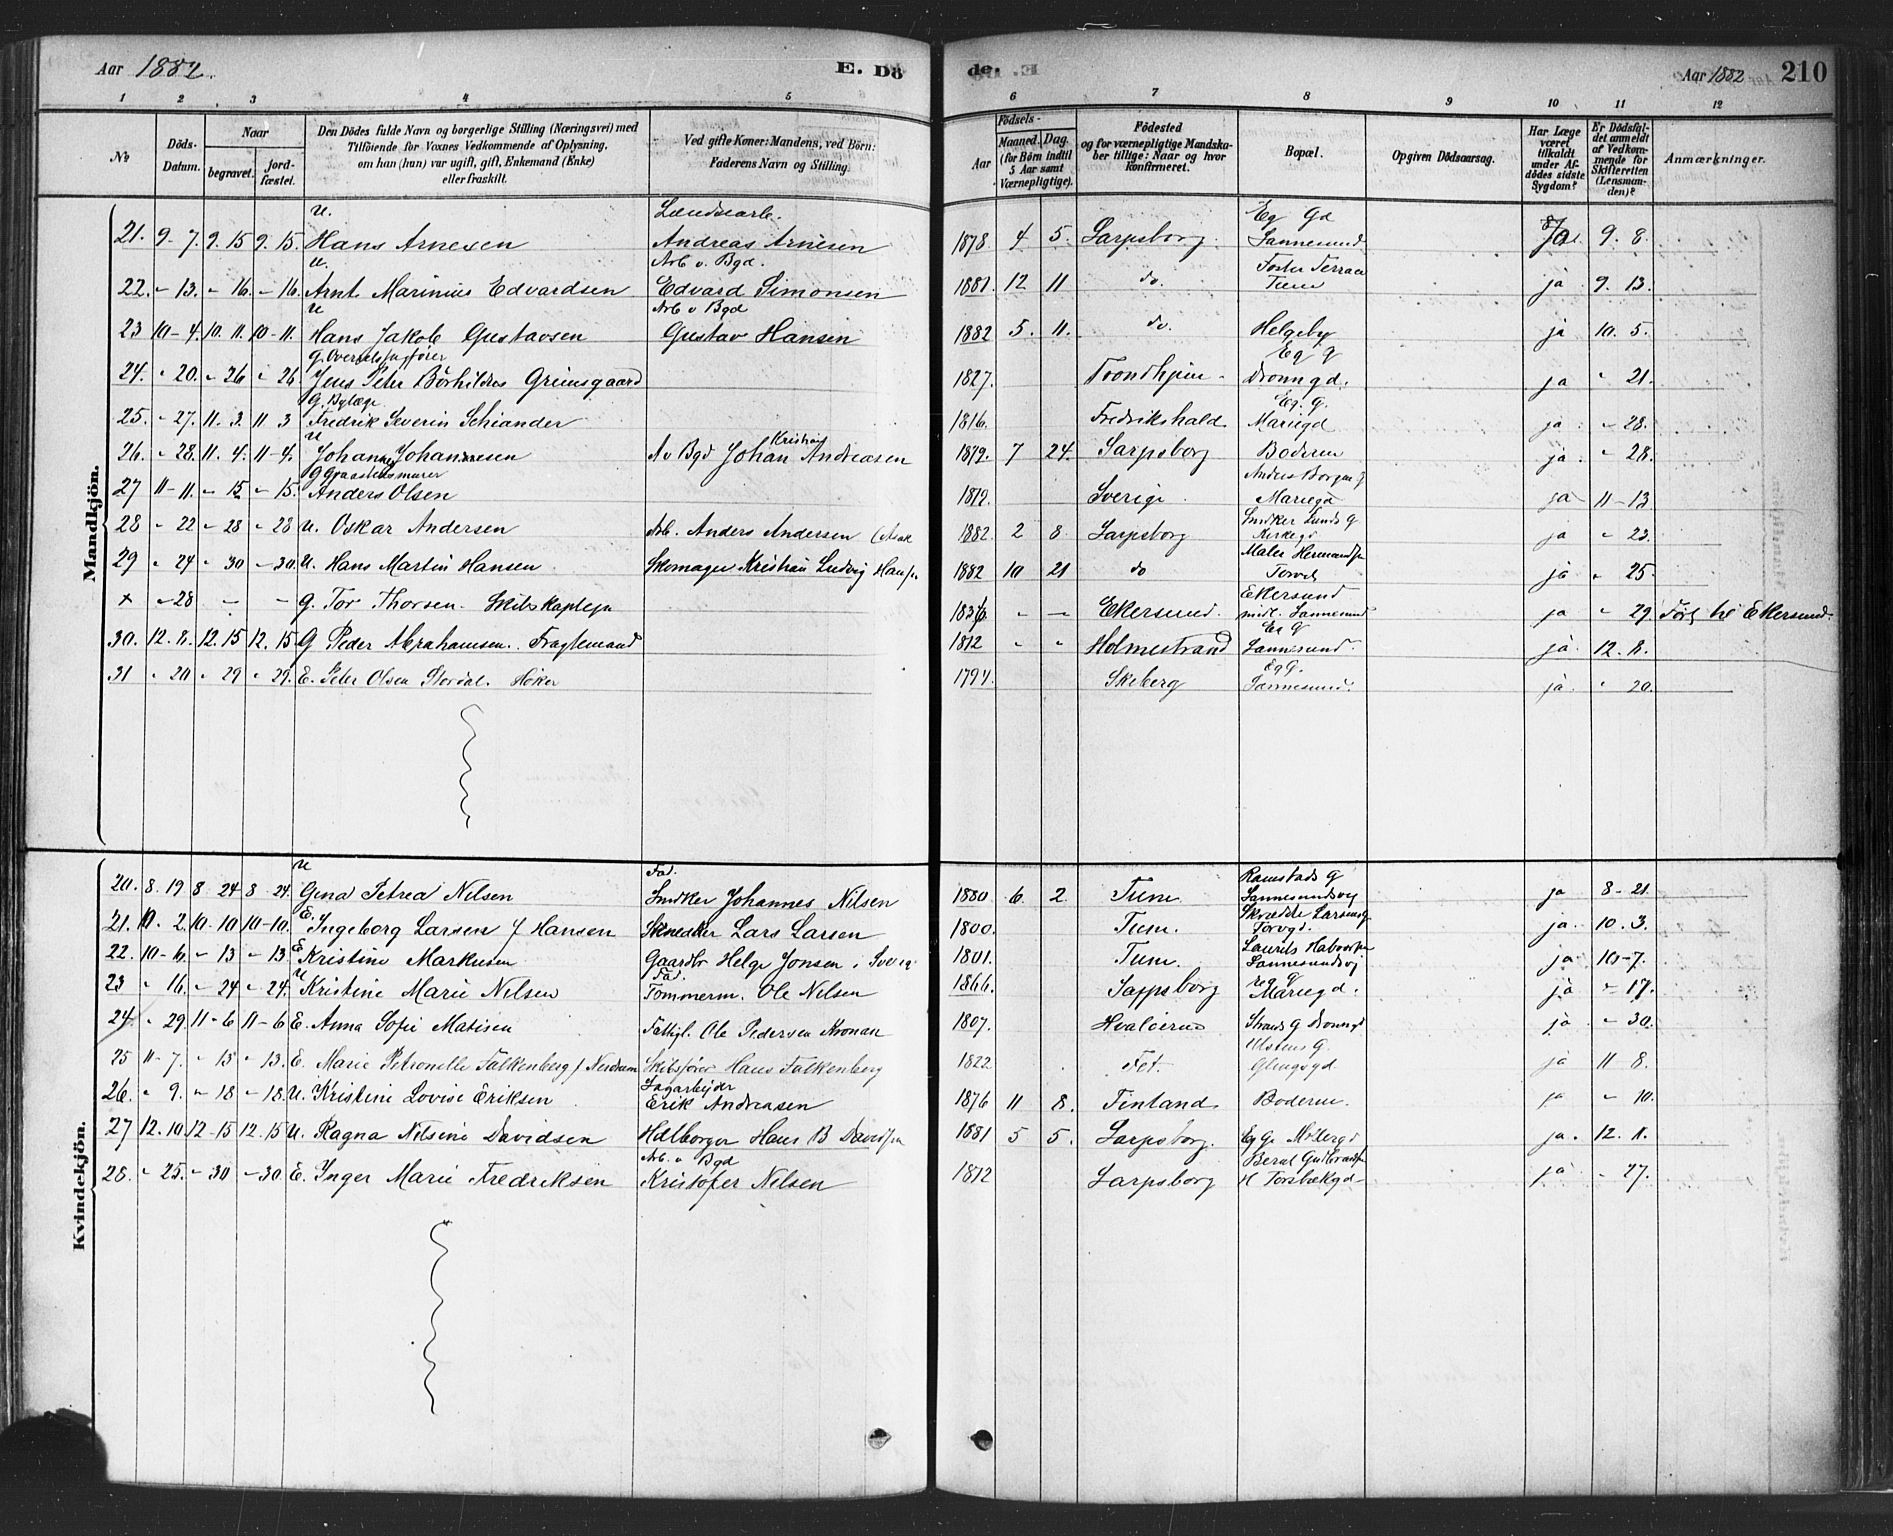 Aar 1882. E. Dö
de. Aar 1882 210
1 2 3 4 5
6 7 8 9 10 11 12
№
Döds-Datum.
Naar
begravet.
jordfæstet.
Den Dödes fulde Navn og borgerlige Stilling (Næringsvei) med
Tilföiende for Voxnes Vedkommende af Oplysning,
om han (hun) var ugift, gift, Enkemand (Enke)
eller fraskilt.
Ved gifte Koner: Mandens, ved Börn:
Faderens Navn og Stilling.
Födsels-
Aar
Maaned. Dag.
(for Börn indtil
5 Aar samt
Værnepligtige).
Födested
og for værnepligtige Mandska-
ber tillige: Naar og hvor
konfirmeret.
Bopæl.
Opgiven Dödsaarsag.
Har Læge
været
tilkaldt
under Af-
dödes sidste
Sygdom?
Er Dödsfal-
det anmeldt
af Vedkom-
mende for
Skifteretten
(Lensman-
den)?
Anmærkninger.
Mandkjön.
u. Eg Gd
21. 9 7. 9. 15 9. 15. Hans Arnesen Andreas Arnesen 1878. 4 5. Sarpsborg. Sannesund Ja 9. 8.
u. Arb v. Bgd.
22. - 13. - 16. - 16. Arnt Marinius Edvardsen Edvard Simonsen 1881. 12 11 do. Tune ja 9. 13.
u Arb v Bgd
23 10 - 4. 10. 11. 10 - 11. Hans Jakob Gustavsen Gustav Hansen 1882 5. 11. do. Helgeby ja 10. 5.
G. Eg G
24. - 20. - 26 - 26 Jens Peter Grimsgaard 1827. Trondhjem - Dronngd. ja " 21.
G. Bylæge Eg. G.
25. - 27. 11. 3. 11 3 Fredrik Severin Schiander 1816. Fredrikshald Mariegd ja - 28.
u Kristian
26. - 28. 11. 4. 11 - 4. Johannes Johannesen A v Bgd Johan Andreasen 1879. 7 24. Sarpsborg Boderne ja. " 28.
G Graastensmurer
27 11 - 11. - 15 - 15. Anders Olsen 1819. Sverige. Mariegd ja 11 - 13
28 - 22 - 28 - 28 u. Oskar Andersen Arb. Anders Andersen 1882. 2 8. Sarpsborg Snedker Lunds G Kirkegd ja " 23.
29 " 24 - 30 - 30. u. Hans Martin Hansen. Skomager Kristian Ludvig Hansen 1882 10 21 do Torvet ja " 25.
x - 28 - - g. Tor Thorsen. Skibskaptejn - - Ekersund. Ekersund midl. Sannesund ja " 29. Ført til Ekersund.
30. 12. 8. 12. 15 12. 15. G Peder Abrahamsen. Fragtemand 1812 " " Holmestrand Eg G Sannesund. ja. 12. 8.
31 " 20 " 29 " 29. E. Peter Olsen Stordal. Høker 1794. Skeberg Eg G. Sannesund. ja. " 20.
Kvindekjön.
u Fad. Ramstads G
20. 8. 19 8 - 24 8 - 24. Gina Petrea Nilsen Snedker Johannes Nilsen 1880 6. 2. Tune Sannesundsvej ja 8 - 21.
21. 10. 2. 10. 10 10 - 10. E. Ingeborg Larsen f Hansen Lars Larsen 1800. Tune. Torvgd. ja. 10. 3.
22. 10 - 6. - 13 - 13. E Kristine Markusen Gaardbr Helge Jonsen i Sverig 1801. Tune. Sannesundsvj ja 10 - 7.
u Fad.
23 " 16. - 24 " 24. Kristine Marie Nilsen Tømmerm. Ole Nilsen 1866. Sarpsborg Mariegd. ja " 17.
24. " 29. 11 - 6 11 - 6 E. Anna Sofie Matisen Fattigl. Ole Pedersen Kronan 1807. Hvaløerne Strands G Dronngd ja. " 30.
25 11 - 7. " 13 " 13. E. Marie Petronelle Falkenberg f Nerdrum Skibsfører Hans Falkenberg 1822. Fet. Ulstens G. Glengsgd. ja 11 - 8.
Sagarbejder
26. " 9. - 18 - 18. u. Kristine Lovise Eriksen Erik Andreasen 1876 11 8. Finland Boderne. ja " 10.
27 12. 10. 12 - 15 12. 15 u. Ragna Nilsine Davidsen Hdlborger Hans B Davidsen 1881 5 5. Sarpsborg. Eg G. Møllergd ja. 12. 11.
Arb. v Bgd
28. " 25. - 30 - 30. E. Inger Marie Fredriksen Kristofer Nilsen 1812 Sarpsborg ja " 27.